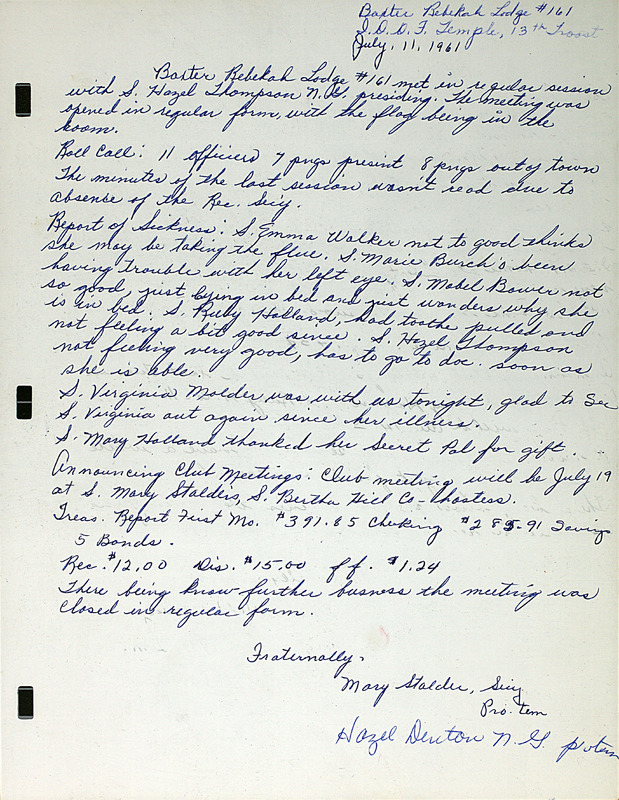 Baxter Rebekah Lodge #161
I.O.O.F. Temple, 13th Troost
July, 11, 1961
Baxter Rebekah Lodge #161 met in regular session
with S. Hazel Thompson N.G. presiding. The meeting was
opened in regular form, with the flag being in the
room.
Roll Call: 11 officers 7 pngs present 8 pngs out of town
The minutes of the last session wasn't read due to
absense of the Rec. Secy.
Report of Sickness: S. Emma Walker not to good thinks
she may be taking the flue. S. Marie Busch's been
having trouble with her left eye. S. Mabel Bower not
so good, just lying in bed and just wonders why she
is in bed. S. Ruby Holland, had toothe pulled and
not feeling a bit good since. S. Hazel Thompson
not feeling very good, has to go to doc. soon as
she is able.
S. Virginia Molder was with us tonight, glad to See
S. Virginia out again since her illness.
S. Mary Holland thanked her Secret Pal for gift
Announcing Club Meetings: Club meeting will be July 19
at S. Mary Stalders, S. Bertha Hill Co-hostess.
Treas. Report First Mo. $391.85 Checking $285.91 Saving
5 Bonds.
Rec. $12.00 Dis. $15.00 f f. $1.24
There being know further busness the meeting was
closed in regular form.
Fraternally,
Mary Stalder, Secy
Pro-tem
Hazel Denton N.G. protem